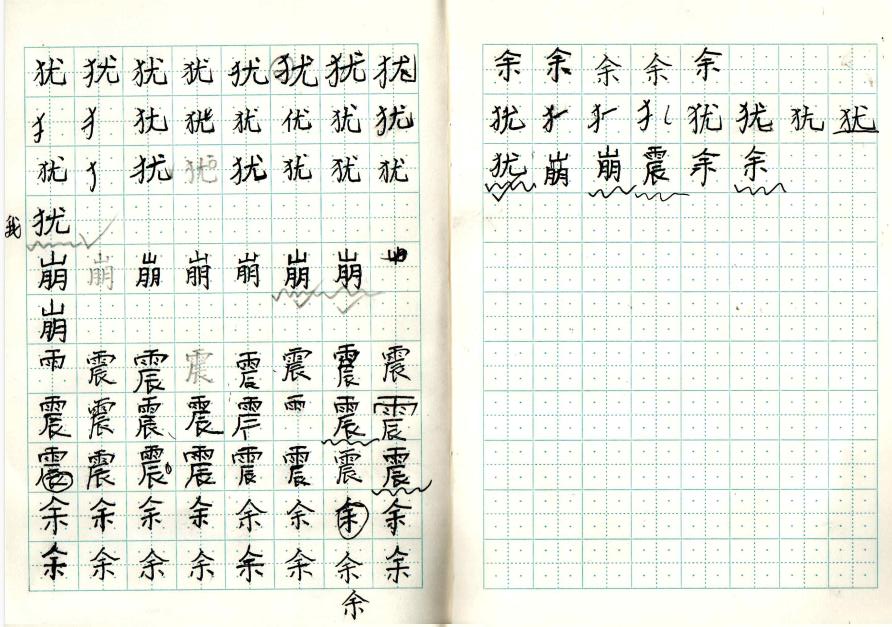 犹犹犹犹犹犹犹犹
犭犭犹犹犹优犹犹
犹犭犹犹犹犹犹犹
我犹
崩崩崩崩崩崩崩
崩
雨震震震震震震震
震震震震震雨震震
震震震震震震震震
余余余余余余余余
余余余余余余余余
余
余余余余余
犹犭犭犭犹犹犹犹
犹崩崩震余余